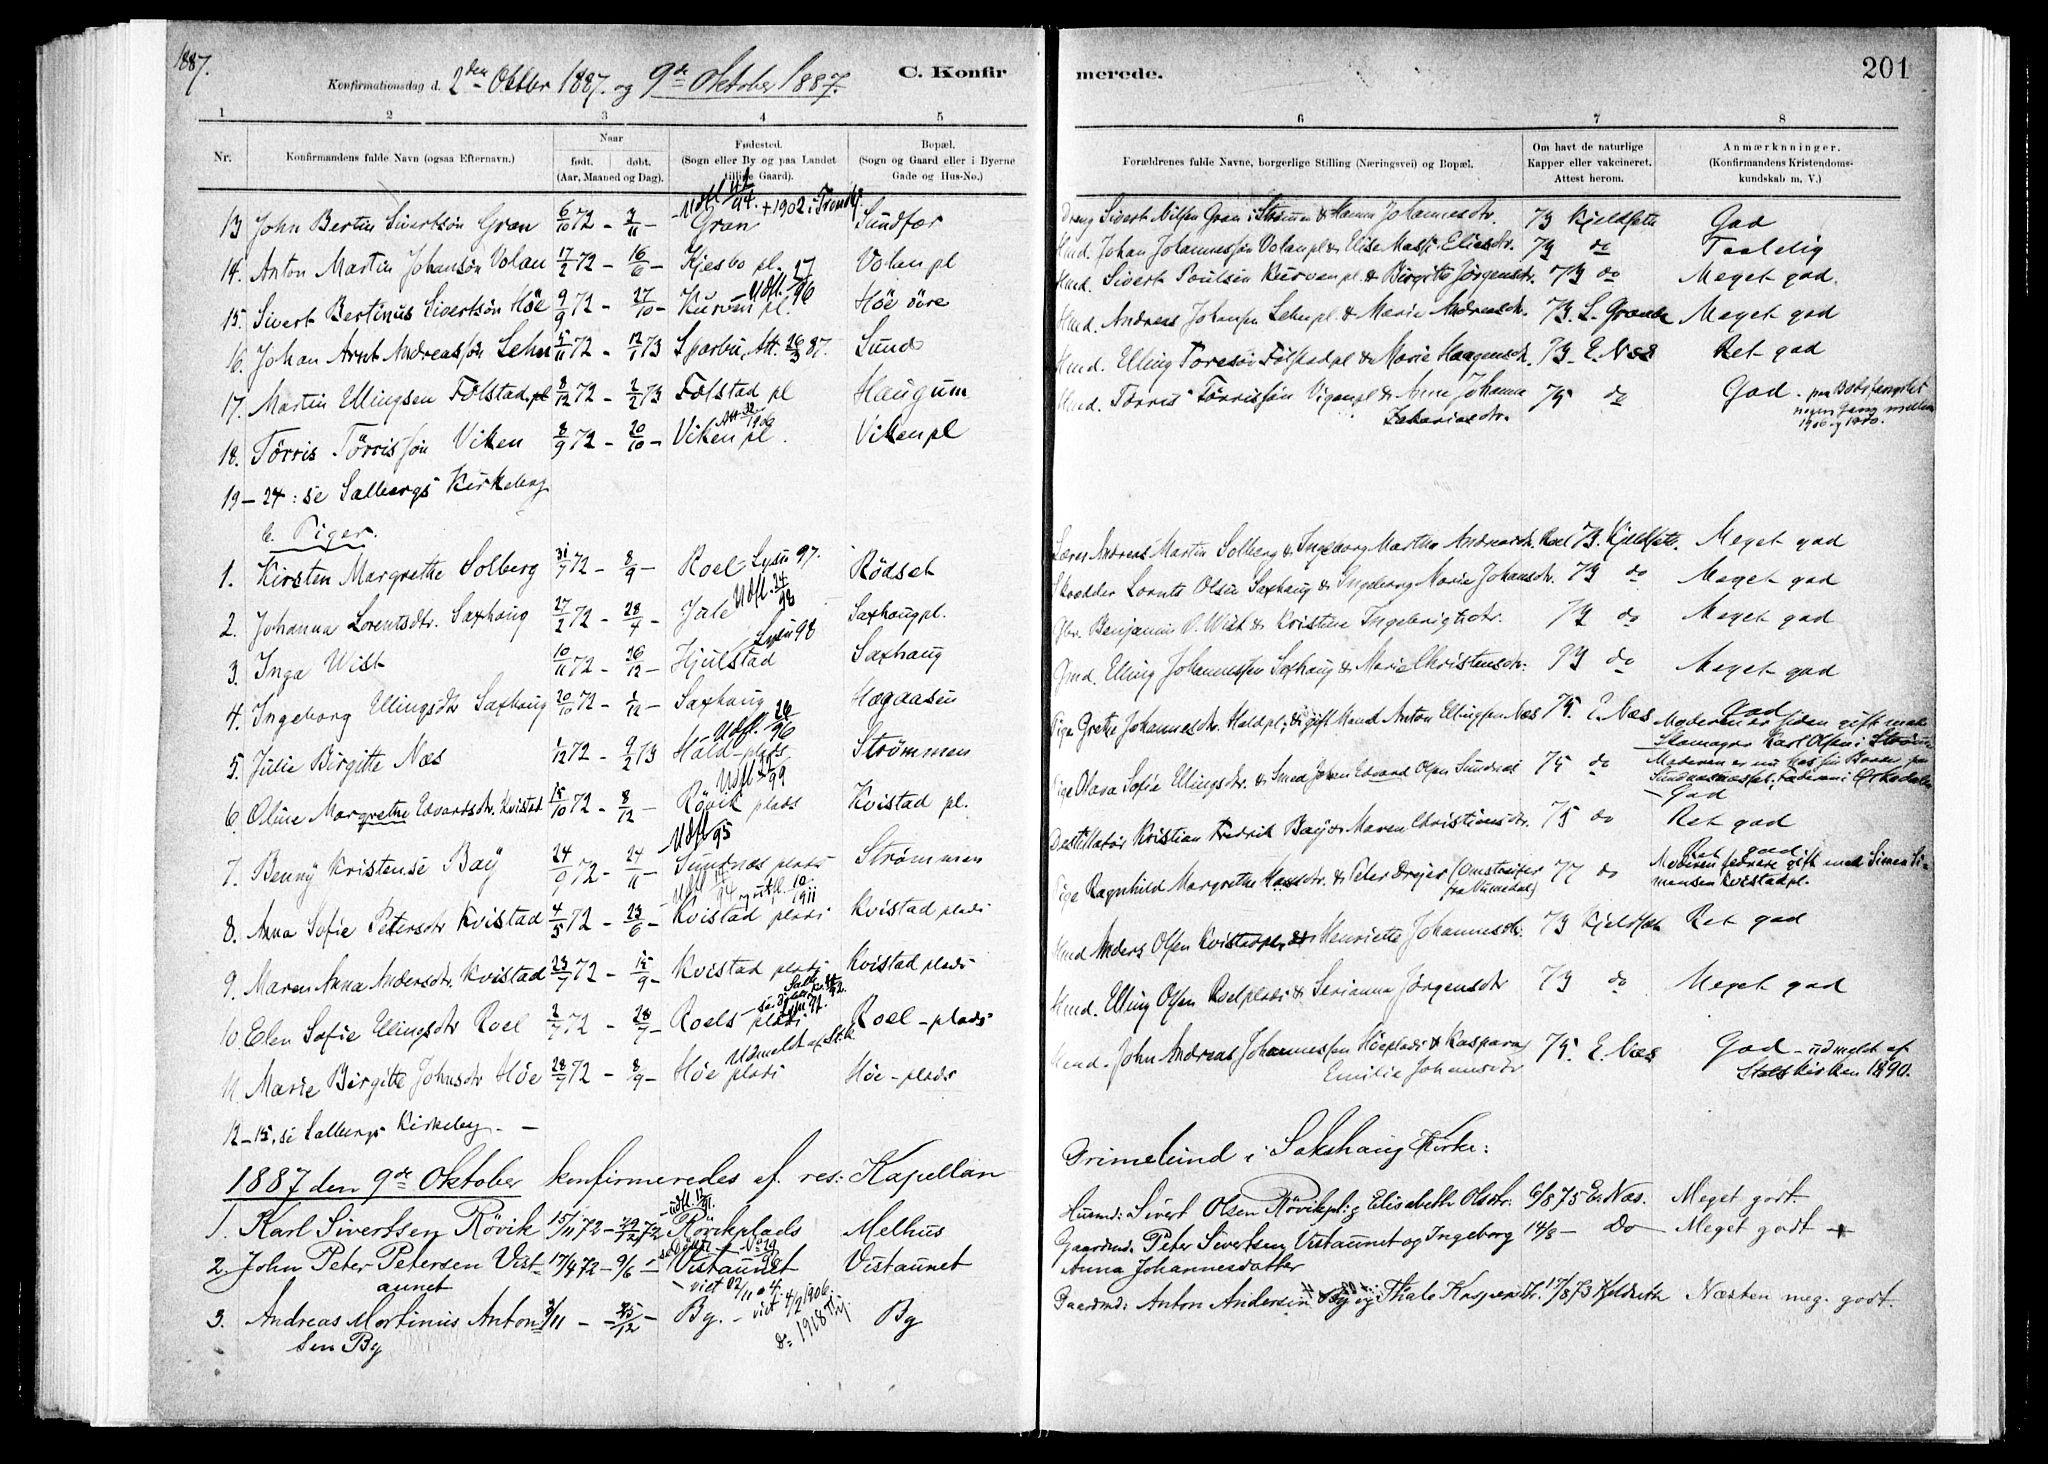 1887.
Konfirmationsdag d. 2den Oktbr 1887. og 9de Oktober 1887.
C. Konfir
merede.
201
1 2 3 4 5 6 7 8
Nr.
Konfirmandens fulde Navn (ogsaa Efternavn.)
Naar
født. døbt.
(Aar, Maaned og Dag).
Fødested.
(Sogn eller By og paa Landet
tillige Gaard).
Bopæl.
(Sogn og Gaard eller i Byerne
Gade og Hus-No.)
Forældrenes fulde Navne, borgerlige Stilling (Næringsvei) og Bopæl.
Om havt de naturlige
Kapper eller vakcineret.
Attest herom.
Anmærkninger.
(Konfirmandens Kristendoms-
kundskab m. V.)
13 John Bertin Sivertsön Gran 6/10 72 - 3/11 - Gran Sundfær Sivert Nilsen Gran i Strömm & Hanna Johannesdr. 73 Kjeldseth God
14. Anton Martin Johansön Volan 17/2 72 - 16/6 - Kjesbo pl. Volan pl Hmd. Johan Johannessön Volanpl & Elise Mass. Eliasdr. 73 do Taalelig
15. Sivert Bertinus Sivertsön Höe 9/9 72 - 27/10 - Kurven pl. Udfl. 17/96 Höe öire Hmd. Sivert Paulsen Kurvenpl. & Birgitte Jörgensdr. 73 do Meget god.
16. Johan Arnt Andreassön Lehn 5/11 72 - 12/1 73 Sparbu, Att. 26/3 87. Sund Hmd. Andreas Johansen Lehnpl & Marie Andreasdr. 73. L. Graael Meget god
17. Martin Ellingsen Følstad pl 8/12 72 - 2/2 73 Følstad pl Haugum Hmd. Elling Toresön Følstadpl & Marie Haagensdr. 73. E. Næs Ret god
18. Tørris Tørrissøn Viken 8/9 72 - 20/10 - Viken pl. Vikenpl Hmd. Tørris Tørrissøn Vikenpl & Anne Johanna 75 do God - paa Bodsfængslet
Zakariasdr. nogen Gang mellem
1906 og 1910.
19-24: se Salbergs Kirkebog
b. Piger.
1. Kirsten Margrethe Solberg 31/7 72 - 8/9 - Roel Lysn 97. Rödset Lærer Andreas Martin Solberg & Ingeborg Martha Andreasdr. Roel 73. Kjeldseth. Meget god
2. Johanna Lorentsdtr. Saxhaug 27/2 72 - 28/4 - Jule Udfl. 24/98 Saxhaugpl. Skrædder Lornts Olsen Saxhaug & Ingeborg Marie Johansdr. 73 do Meget god
3. Inga Wist 10/11 72 - 26/12 - Hjulstad Lysn 98 Saxhaug Gbr. Benjamin O. Wist & Kristine Ingebrigtsdr. 73 do Meget god
4. Ingeborg Ellingsdtr Saxhaug 20/10 72 - 1/12 - Saxhaug Hegaasen Gmd. Elling Johannessen Saxhaug & Marie Christensdr. 73 do Meget god
5. Julie Birgitte Næs 1/12 72 - 9/2 73 Hald-plads Udfl. 26/96 Strömmen Pige Grethe Johannesdr. Haldpl. & gift Mand Anton Ellingsen Næs 75. E. Næs God
Moderen er siden gift med
Skomager Karl Olsen i Ström
6. Oline Margrethe Edvardsdr. Kvistad 15/10 72 - 8/12 - Rövik plads Kvistad pl. Pige Olava Sofie Ellingsdr. & Smed Johan Edvard Olsen Sundnæs 75 do Moderen er nu hos sin Broder paa
Sundnæsnespl., Faderen i Orkedalen
- God
7. Benny Kristense Bay 24/9 72 - 24/11 - Sundnæs plads Udfl 95 Strömmen Destillatör Kristian Fredrik Bay & Maren Christiansdr. 75 do Ret god
8. Anna Sofie Petersdr Kvistad 4/5 72 - 23/6 - Kvistad plads Kvistad plads Pige Ragnhild Margrethe Hansdr. & Peter Drejer (Omstreifer 77 do Ret god
fra Numedal) Moderen senere gift med Simen Si-
mensen Kvistadpl.
9. Maren Anna Andersdr. Kvistad 23/7 72 - 15/9 - Kvistad plads Kvistad plads Hmd Anders Olsen Kvistadpl & Henriette Johannesdr. 73 Kjeldseth Ret god
10. Elen Sofie Ellingsdr Roel 2/7 72 - 28/7 - Roels plads Roel-plads Hmd. Elling Olsen Roelplads & Serianna Jörgensdr 73 do Meget god
11. Marie Birgitte Johnsdr Höe 28/7 72 - 8/9 - Höe plads Udmeldt af St.k. Höe-plads Hmd. John Andreas Johannessen Höeplads & Kaspara 75. E. Næs God - udmeldt af
Emilie Johansdr Statskirken 1890.
12-15, se Salbergs Kirkebog. -
1887 den 9de Oktober konfirmeredes af res: Kapellan Grimelund i Sakshaug Kirke:
1. Karl Sivertsen Rövik 15/11 72 - 29/12 72 Rövikplads Melhus Husmd: Sivert Olsen Rövikpl. og Elisabeth Olsdtr. 6/8 75 E. Næs. Meget godt.
2. John Peter Petersen Vist- 17/4 72 - 9/6 - Vistaunet Vistaunet Gaardmd. Peter Sivertsen Vistaunet og Ingeborg 14/8 - Do Meget godt
aunet Anna Johannesdatter
3. Andreas Martinius Anton- 3/11 - 25/12 - By. - viet 4/2 1906. By Gaardmd: Anton Andersen By og Thale Kasperdtr. 17/8 73 Keldseth Næsten meg. godt.
sen By